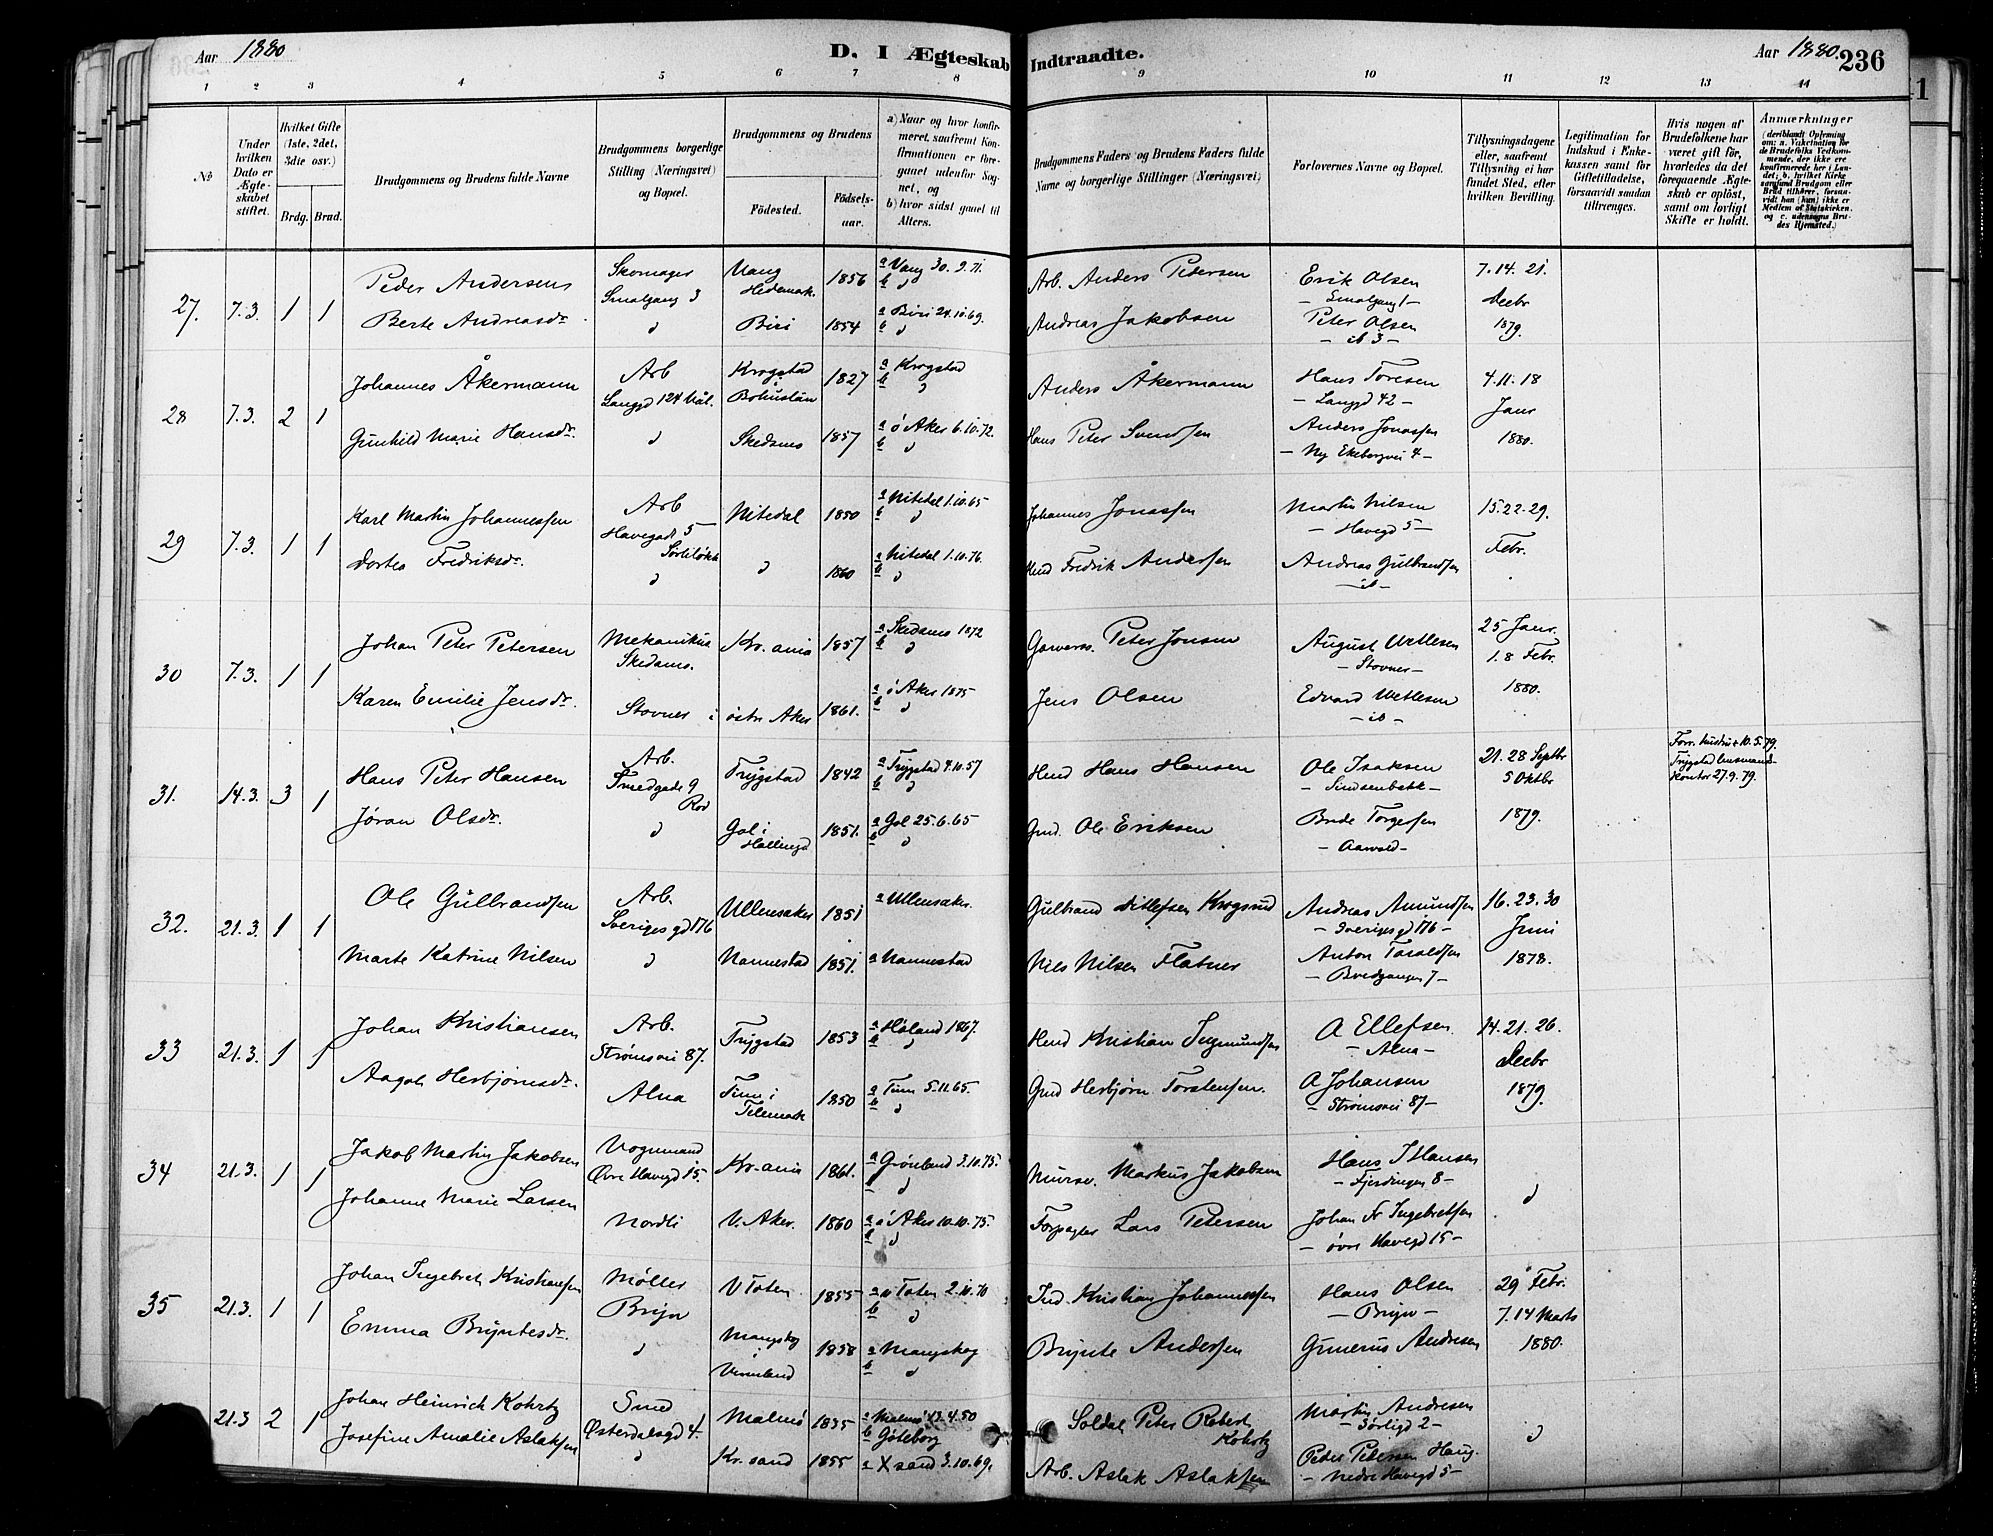 Aar 1880
D. I Ægteskab Indtraadte.
Aar 1880.
236
1 2 3 4 5 6 7 8 9 10 11 12 13 14
No
Under hvilken Dato er Ægteskabet stiftet.
Hvilket Gifte (1ste, 2det, 3die osv.)
Brdg. Brud.
Brudgommens og Brudens fulde Navne
Brudgommens borgerlige Stilling (Næringsvei) og Bopæl.
Brudgommens og Brudens
Fødested.
Fødselsaar.
a) Naar og hvor konfirmeret, saafremt Konfirmationen er foregaaet udenfor Sognet, og
b) hvor sidst gaaet til Alters.
Brudgommens Faders og Brudens Faders fulde Navne og borgerlige Stillinger (Næringsvei)
Forlovernes Navne og Bopæl.
Tillysningsdagene eller, saafremt Tillysning ei har fundet Sted, efter hvilken Bevilling.
Legitimation for Indskud i Enkekassen samt for Giftetilladelse, forsaavidt saadan tiltrænges.
Hvis nogen af Brudefolkene har været gift før, hvorledes da det foregaaende Ægteskab er opløst, samt om lovligt Skifte er holdt.
Anmærkninger
(deriblandt Oplysning om: a. Vakcination for de Brudefolks Vedkommende, der ikke ere konfirmerede her i Landet; b. hvilket Kirkesamfund Brudgom eller Brud tilhører, forsaavidt han (hun) ikke er Medlem af Statskirken, og c. udensogns Brudes Hjemsted.)
27. 7.3. 1 1
Peder Andersen Skomager Smalgang 3 Vang Hedemark. 1856 a Vang 30.9.71. b d
Arb. Anders Pedersen Erik Olsen – Smalgang 1 – 7. 14. 21. Decbr 1879.
Berte Andreasdr. d Biri 1854 a Biri 24.10.69. b d
Andreas Jakobsen Peter Olsen – ib 3 –
28 7.3. 2 1
Johannes Åkermann Arb Langgd 124 Vål. Krogstad Bohuslän 1827 a Krogstad b d
Anders Åkermann Hans Toresen – Langgd 42 – 4. 11. 18 Janr 1880.
Gunhild Marie Hansdr. d Skedsmo 1857 a ö Aker 6.10.72. b d
Hans Peter Svendsen Anders Jonassen – Ny Ekebergvei 4 –
29 7.3. 1 1
Karl Martin Johannessen Arb Havegade 5 Nitedal 1850 a Nitedal 1.10.65 b d
Johannes Jonassen Martin Nilsen – Havegd 5 – 15. 22. 29. Febr.
Dortea Fredriksdr. d d 1860 a Nitedal 1.10.76. b d
Hmd Fredrik Andersen Andreas Gulbrandsen – ib –
30 7.3. 1 1
Johan Peter Petersen Mekanikus Skedsmo. Kr.ania 1857 a Skedsmo 1872 b d
Garversv. Peter Jonsen August Wetlesen – Stovner – 25 Janr. 1. 8 Febr. 1880.
Karen Emilie Jensdr. Stovner i östre Aker 1861. a ö Aker 1875 b d
Jens Olsen Edvard Wetlesen – ib –
31. 14.3. 3 1
Hans Peter Hansen Arb. Smedgade 9 Rod Trygstad 1842 a Trygstad 4.10.57 b d
Hmd Hans Hansen Ole Isaksen – Sinsenbakk – 21. 28 Septbr 5 Oktbr 1879.
Forr. hustru + 10.5.79. Trygstad lensmands-kontor 27.9.79.
Jøran Olsdr. d Gol i Hallingd 1851. a Gol 25.6.65 b d
Gmd. Ole Eriksen Brede Torgersen – Aarvold –
32. 21.3. 1 1
Ole Gulbrandsen Arb. Sverigesgd 176 Ullensaker 1851 a Ullensaker.
Gulbrand Ditlefsen Krogsrud Andreas Amundsen – Sverigesgd 176 – 16. 23. 30 Juni 1878.
Marte Katrine Nilsen d Nannestad 1851. a Nannestad
Nils Nilsen Flatner Anton Taraldsen – Bredgangen 7 –
33 21.3. 1 1
Johan Kristiansen Arb. Strømsvei 87. Trygstad 1853 a Høland 1867. b d
Hmd Kristian Sigmundsen A Ellefsen. – Alna – 14. 21. 26. Decbr 1879.
Aagot Herbjørnsdr. Alna Tinn i Telemark 1850 a Tinn 5.11.65. b d
Gmd Herbjørn Torstensen. A Johansen – Strømsvei 87 –
34 21.3. 1 1
Jakob Martin Jakobsen Vognmand Øvre Havegd 15. Kr.ania 1861. a Grønland 3.10.75. b d
Murer. Markus Jakobsen Hans T Hansen – Fjerdingen 8 – d
Johanne Marie Larsen Nordli V. Aker. 1860 a ö Aker 10.10.75. b d
Forpagter Lars Petersen Johan Fr Ingebretsen – øvre Havegd 15 –
35 21.3. 1 1
Johan Ingebret Kristiansen Møller Bryn V Toten 1855 a v Toten 2.10.70 b d
Ind. Kristian Johannessen Hans Olsen – Bryn – 29 Febr. 7. 14 Marts 1880.
Emma Bryntesdr. d Mangskog i Vermland 1858 a Mangskog b d
Brynte Andersen Gunerius Andresen
21.3 2 1
Johan Heinrich Kohrtz Smed Østerdalsgd 4. Malmö 1835 a Malmö 13.4.50 b Göteborg
Soldat Peter Robert Kohrtz Martin Andresen – Sörligd 2 – d
Josefine Amalie Aslaksen d Kr.sand 1855 a Xsand 3.10.69.
Arb. Aslak Aslaksen Peder Petersen Haug – nedre Havegd 5 –